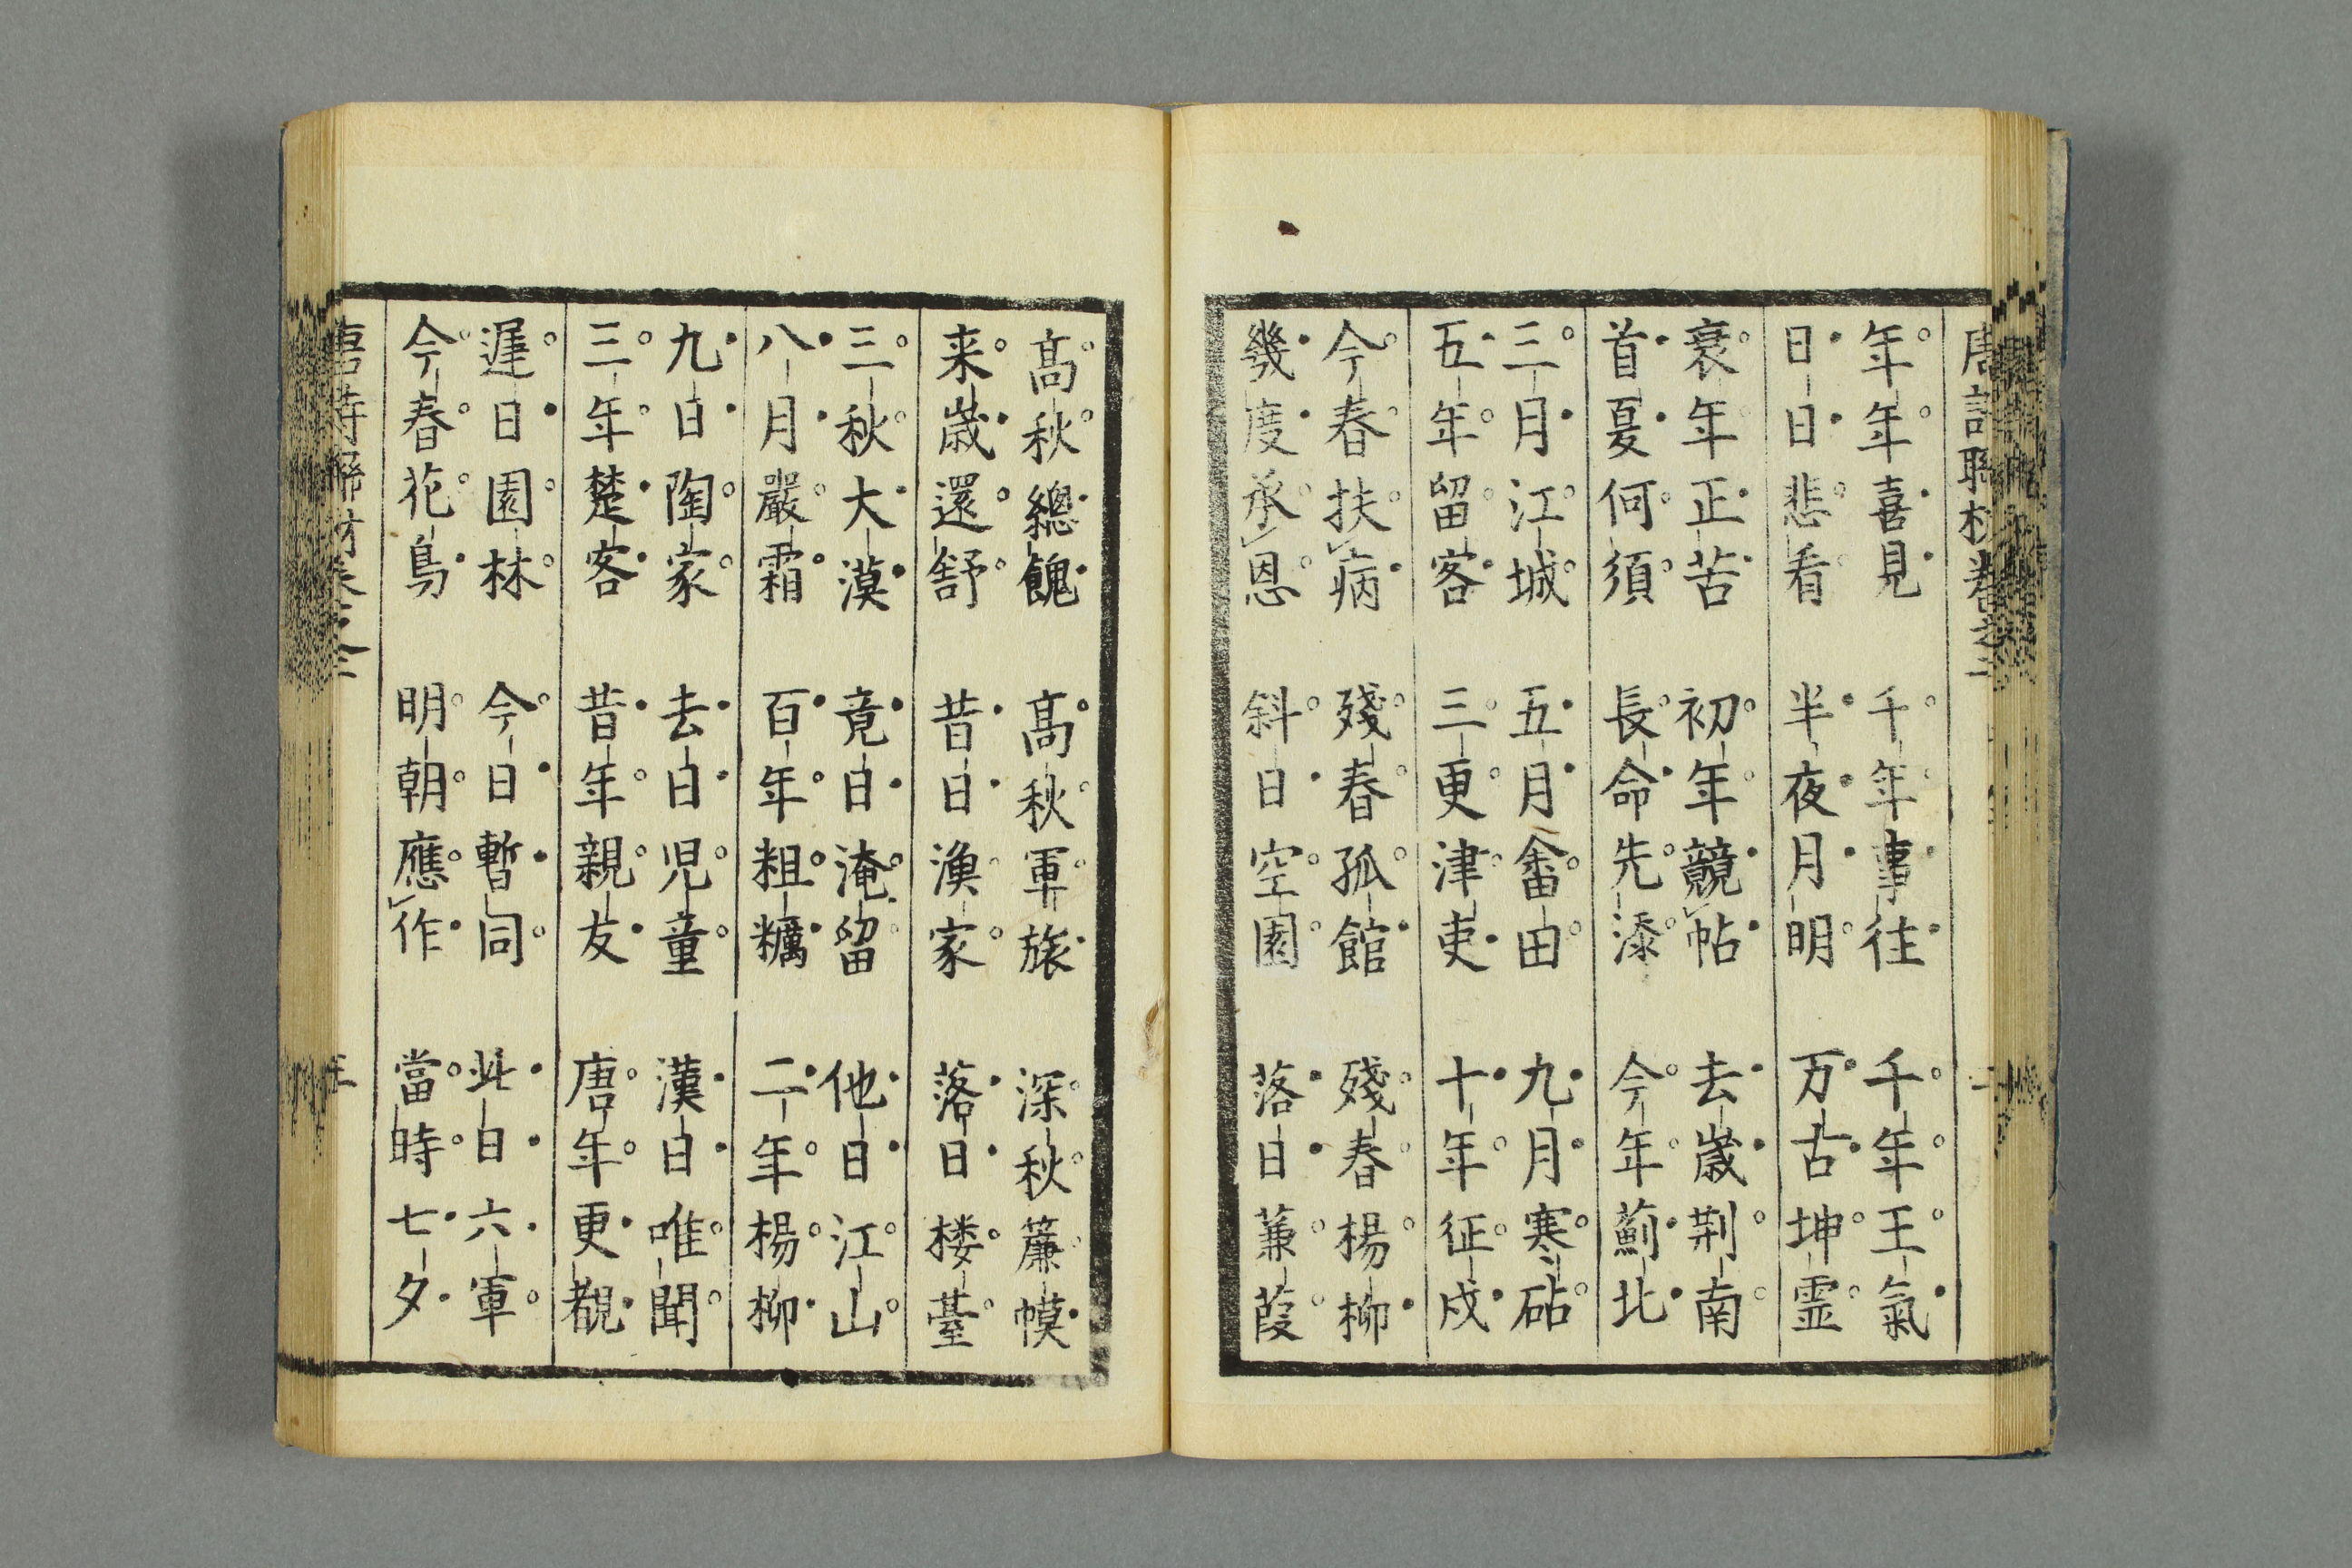 年年喜見　千年事往　千年王氣
日日悲看　半夜月明　万古坤霊
衰年正苦　初年競帖　去歳荆南
首夏何須　長命先漆　今年薊北
三月江城　五月畬田　九月寒砧
五年留客　三更津吏　十年征戍
今春扶病　殘春孤館　殘春楊柳
幾度承恩　斜日空園　落日蒹葭
高秋總餽　高秋軍旅　深秋簾幙
来歳還舒　昔日漁家　落日楼䑓
三秋大漠　竟日淹留　他日江山
八月嚴霜　百年粗糲　二年楊柳
九日陶家　去日児童　漢日唯聞
三年楚客　昔年親友　唐年更覩
遅日園林　今日暫同　此日六軍
今春花鳥　明朝應作　當時七夕